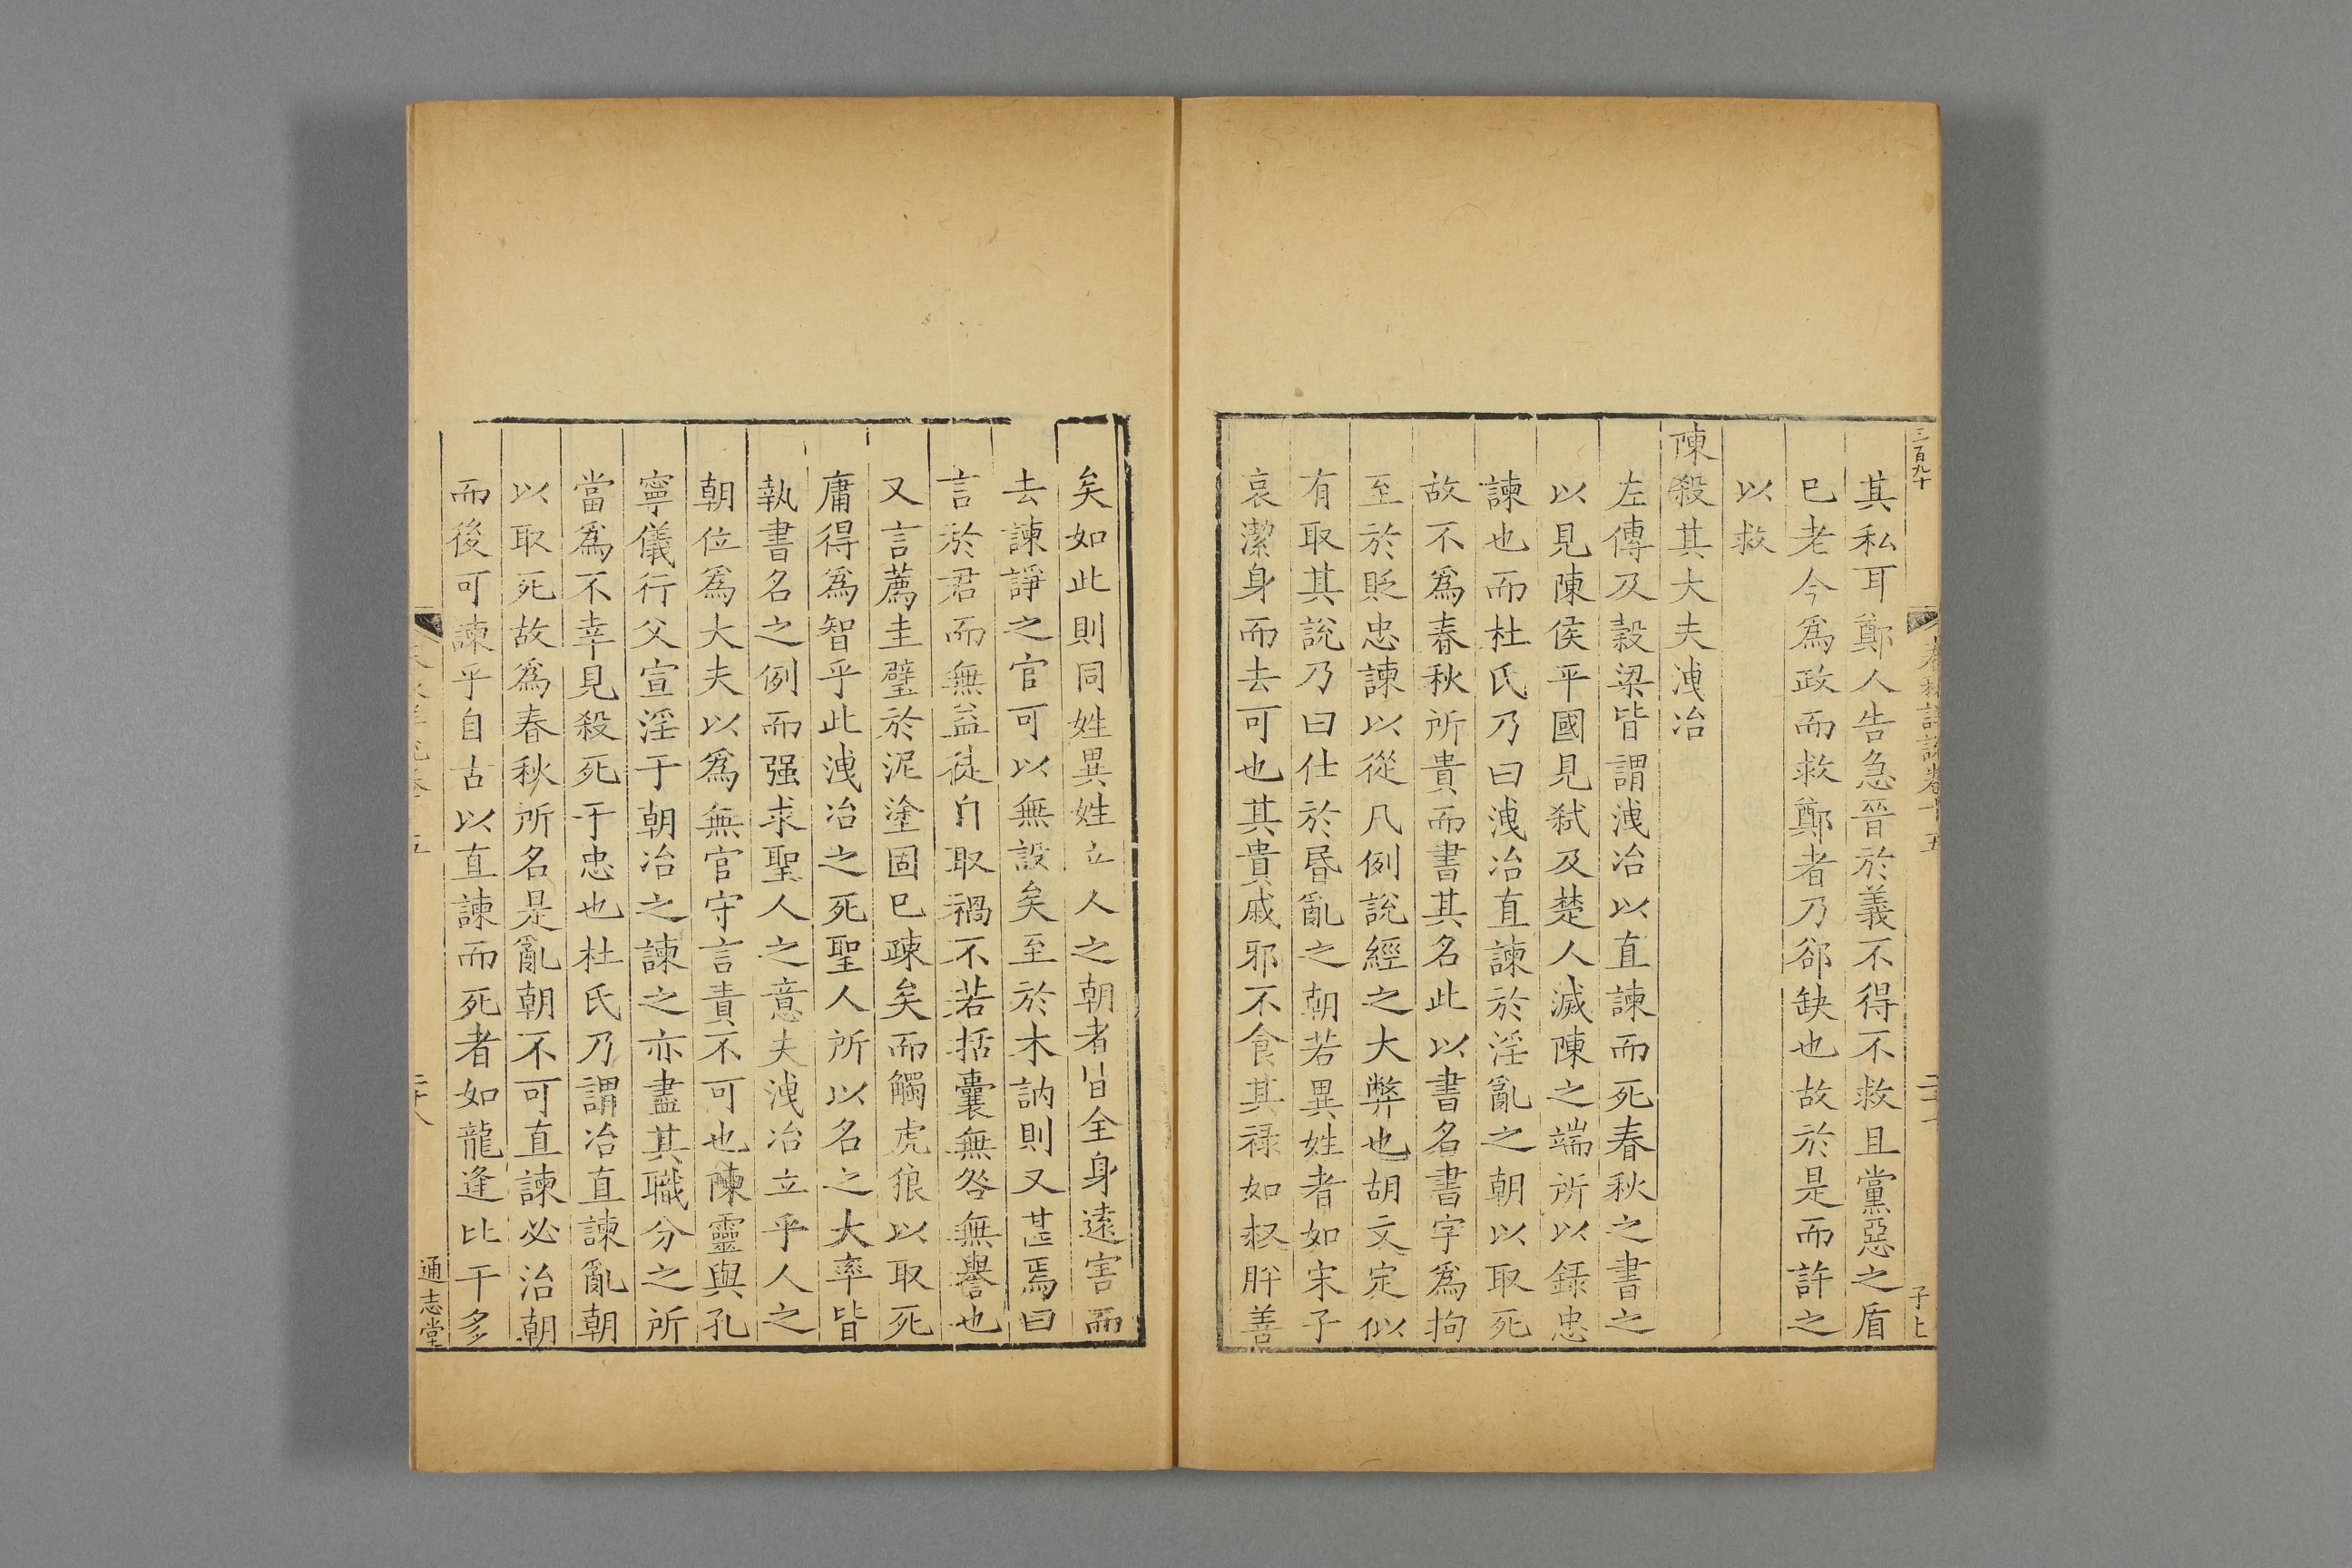 三百九十
子上
其私耳鄭人告急晉於義不得不救且黨惡之盾
已老今爲政而救鄭者乃郤缺也故於是而許之
以救
陳殺其大夫洩冶
左傳及穀梁皆謂洩冶以直諫而死春秋之書之
以見陳侯平國見弑及楚人滅陳之端所以錄忠
諫也而杜氏乃曰洩冶直諫於淫亂之朝以取死
故不爲春秋所貴而書其名此以書名書字爲拘
至於貶忠諫以從凡例說經之大弊也胡文定似
有取其說乃曰仕於昏亂之朝若異姓者如宋子
哀潔身而去可也其貴戚邪不食其祿如叔肸善
矣如此則同姓異姓立人之朝者皆全身遠害而
去諫諍之官可以無設矣至於木訥則又甚焉曰
言於君而無益徒自取禍不若括囊無咎無譽也
又言薦圭璧於泥塗固已疎矣而觸虎狼以取死
庸得爲智乎此洩冶之死聖人所以名之大率皆
執書名之例而强求聖人之意夫洩冶立乎人之
朝位爲大夫以爲無官守言責不可也陳靈與孔
寧儀行父宣淫于朝冶之諫之亦盡其職分之所
當爲不幸見殺死于忠也杜氏乃謂冶直諫亂朝
以取死故爲春秋所名是亂朝不可直諫必治朝
而後可諫乎自古以直諫而死者如龍逢比干多
通志堂